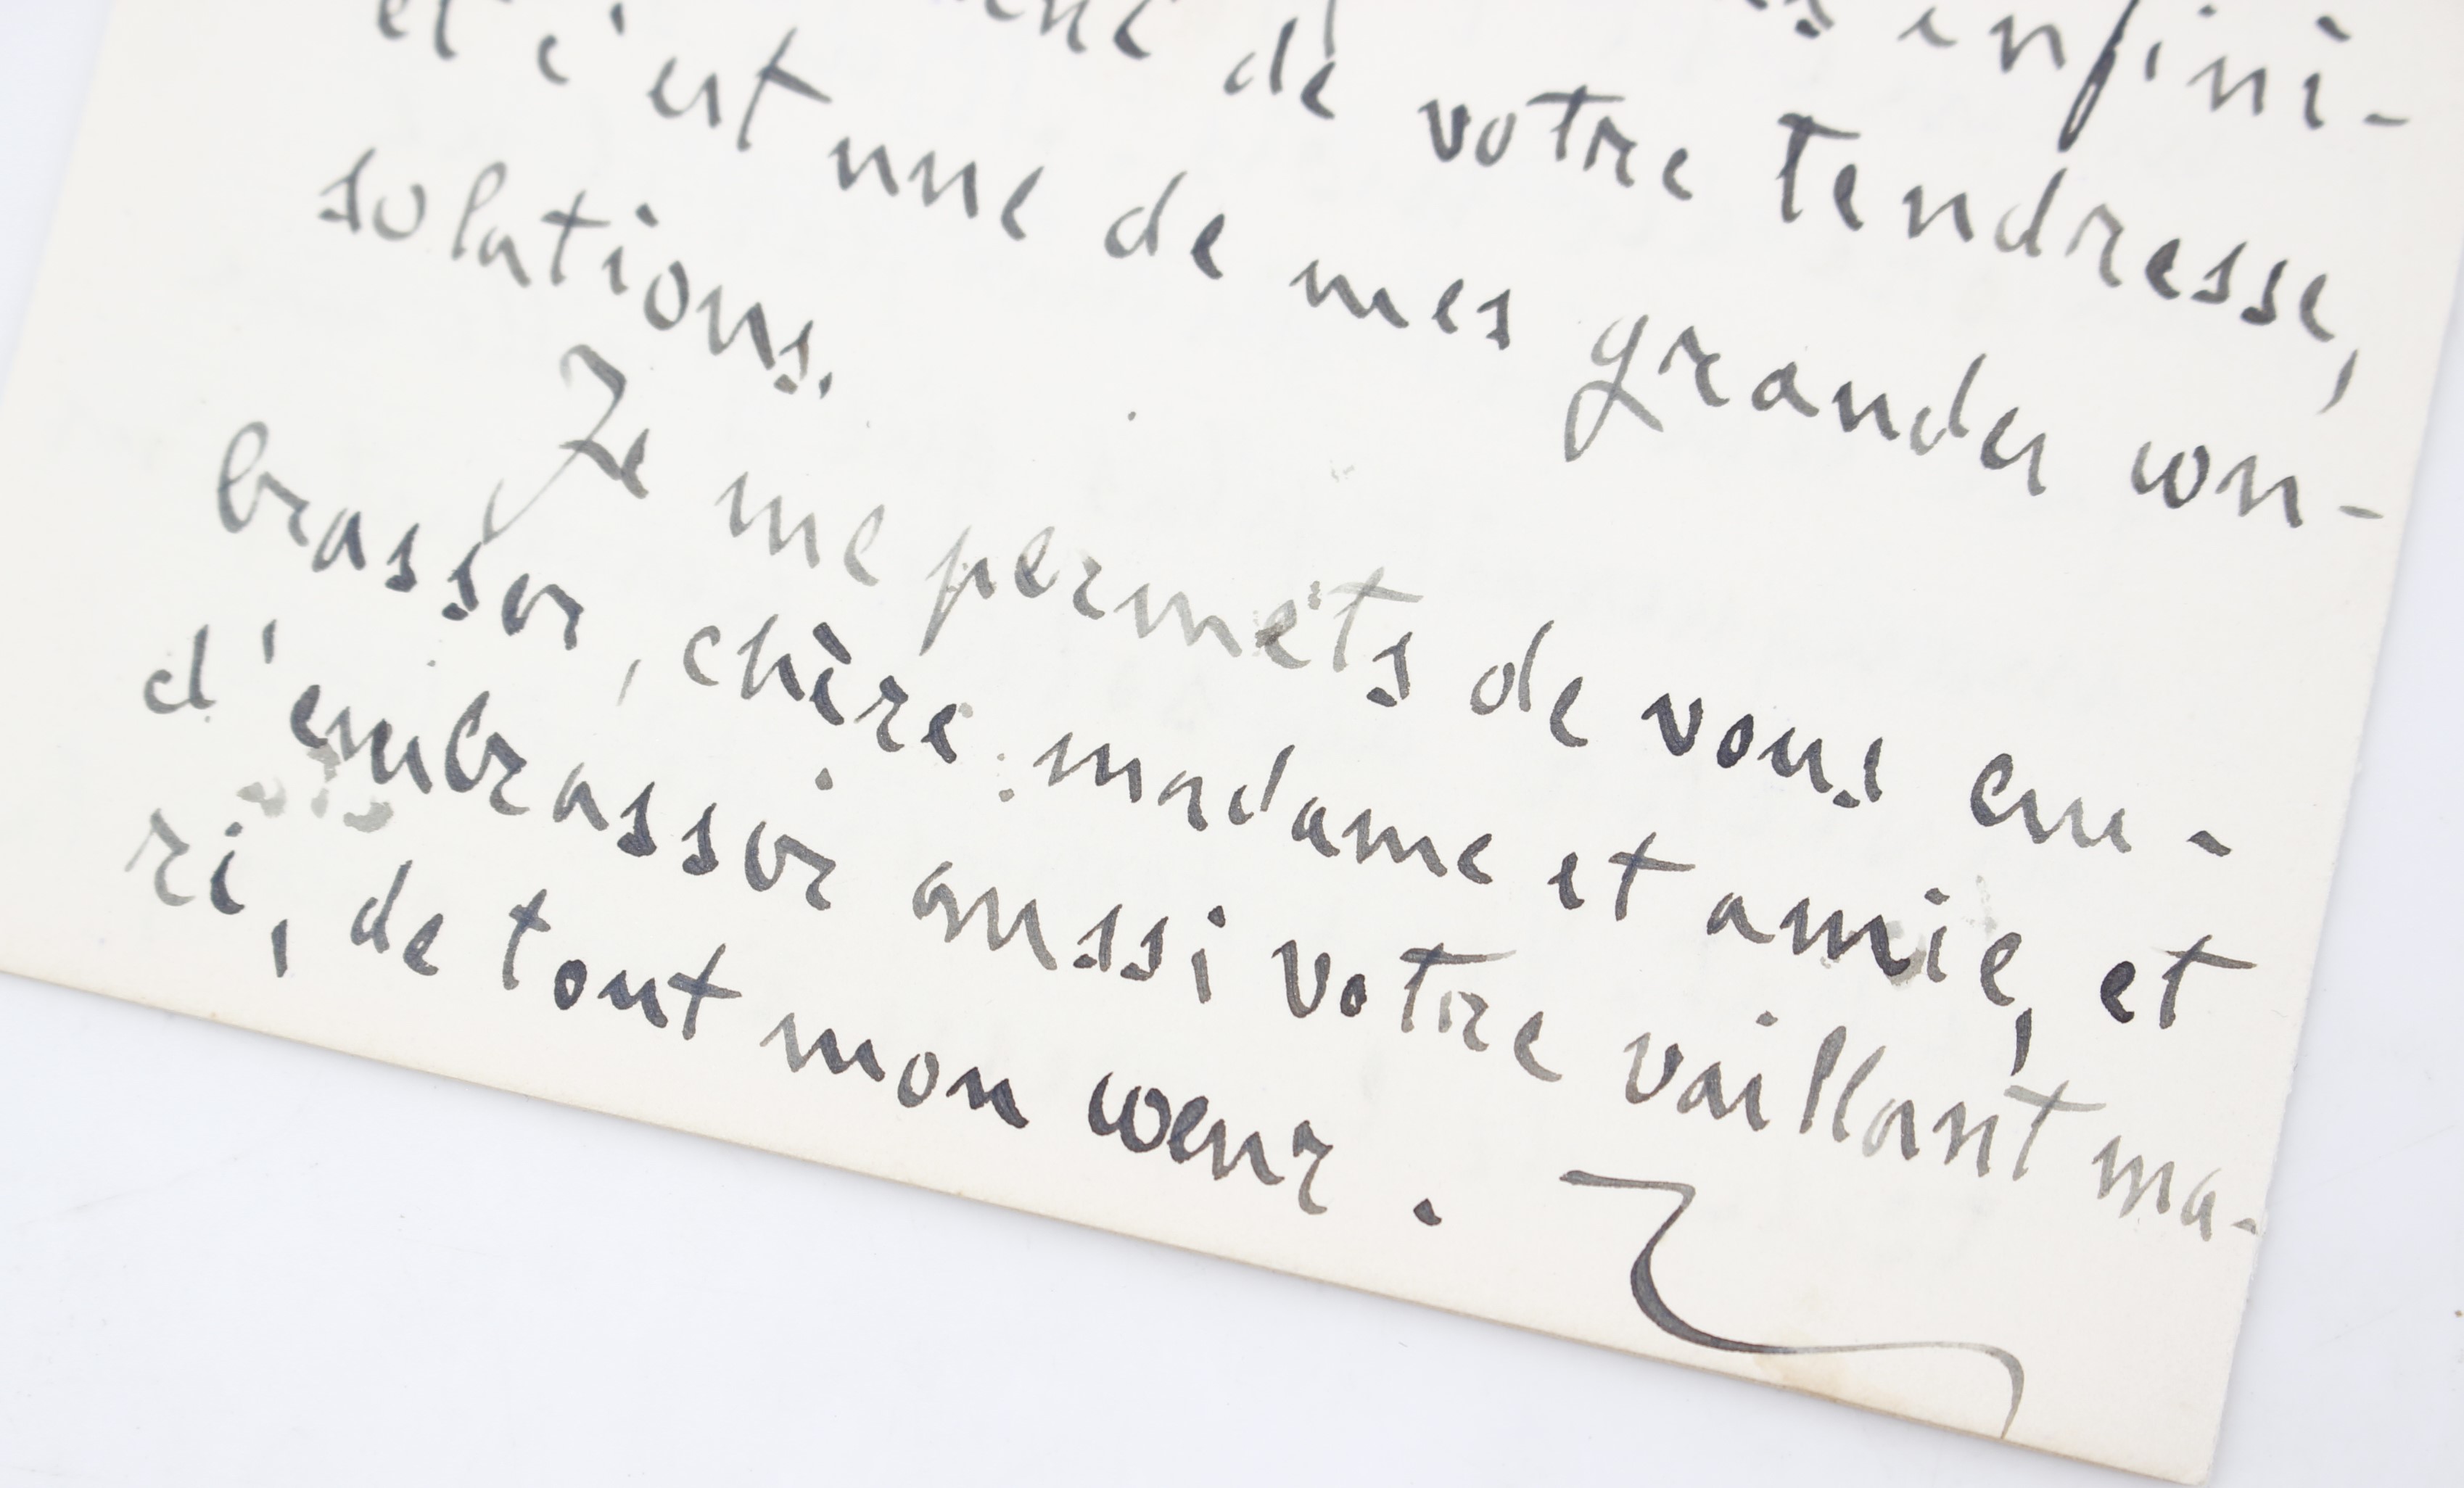 infini-
de votre tendresse,
et c'est une de mes grandes con-
solations.
Je me permets de vous em-
brasser, chère madame et amie, et
d'embrasser aussi votre vaillant ma-
ri, de tout mon coeur.